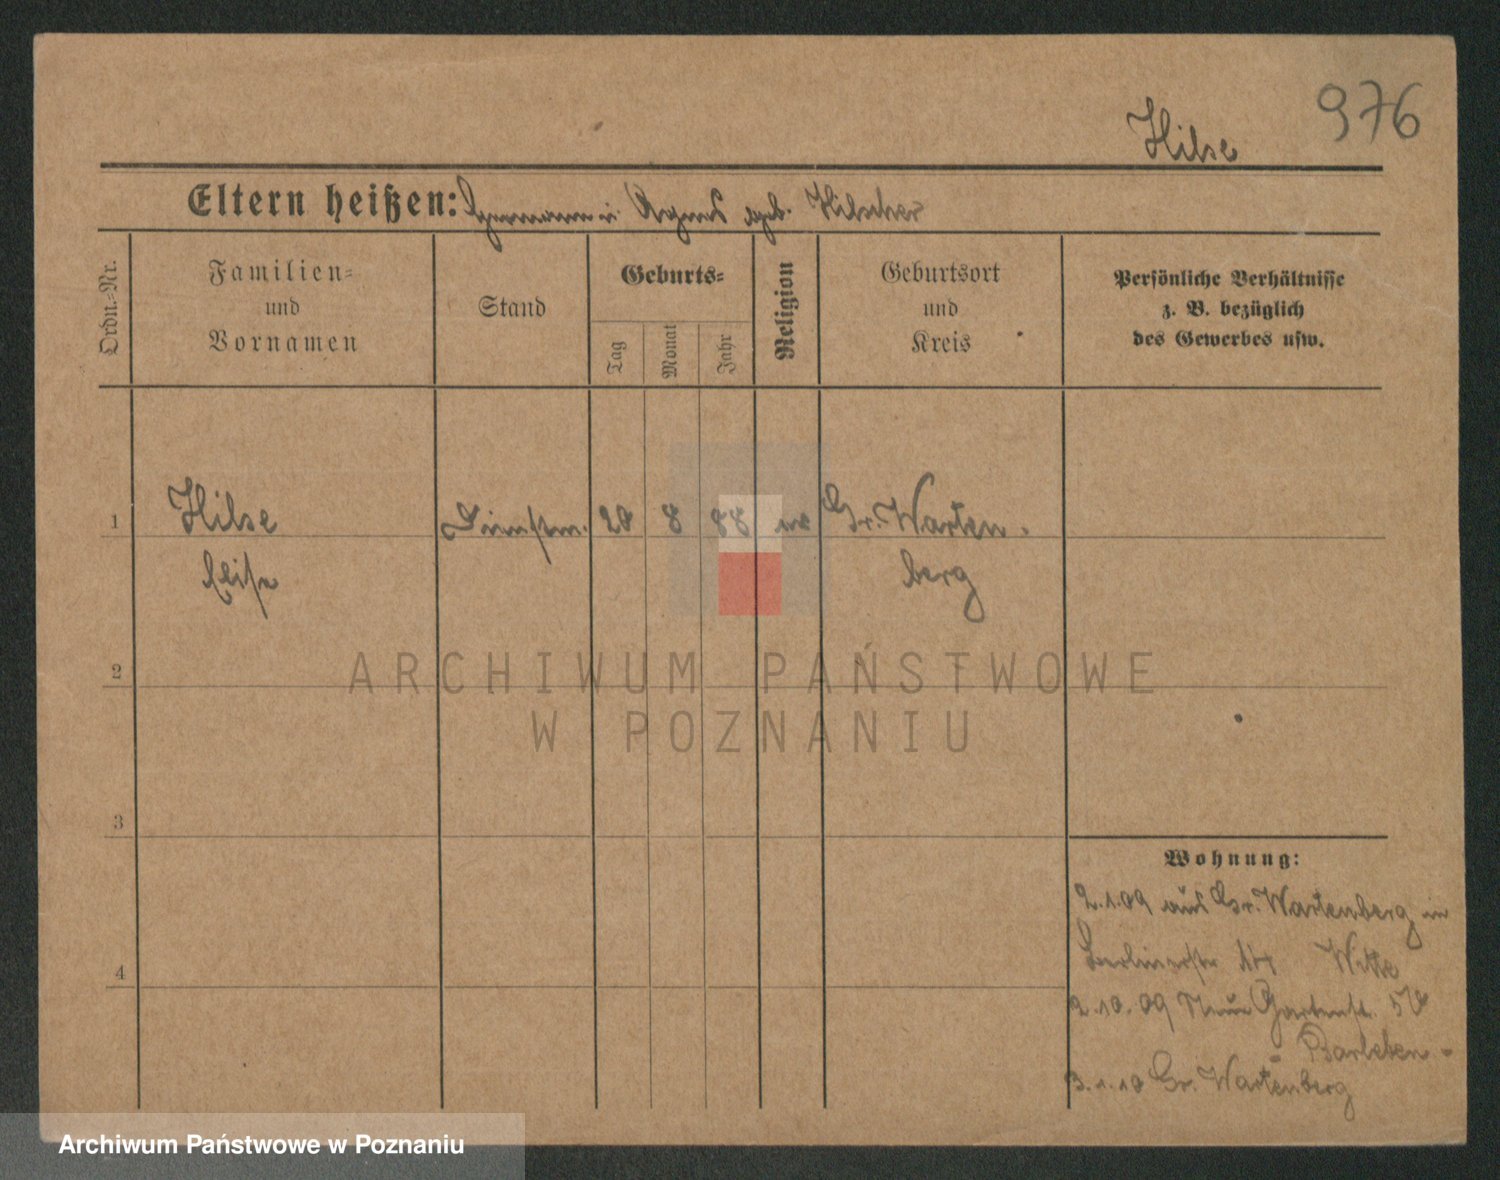 976
Hilse
Eltern heißen: Hermann u. Agnes geb. Hilscher
Ordn.-Nr.
Familien-
und
Vornamen
Stand
Geburts-
Tag
Monat
Jahr
Religion
Geburtsort
und
Kreis
Persönliche Verhältnisse
z. B. bezüglich
des Gewerbes usw.
1
Hilse
Dienstm.
20
8
88
ev
Gr. Warten-
Elise
berg
ARCHIWUM PAŃSTWOWE
W POZNANIU
2
3
4
Wohnung:
2.1.09 aus Gr. Wartenberg in
Berlinerstr Witte
2.10.09 Neue Gartenst.
Barleben -
3.1.10 Gr. Wartenberg
Archiwum Państwowe w Poznaniu